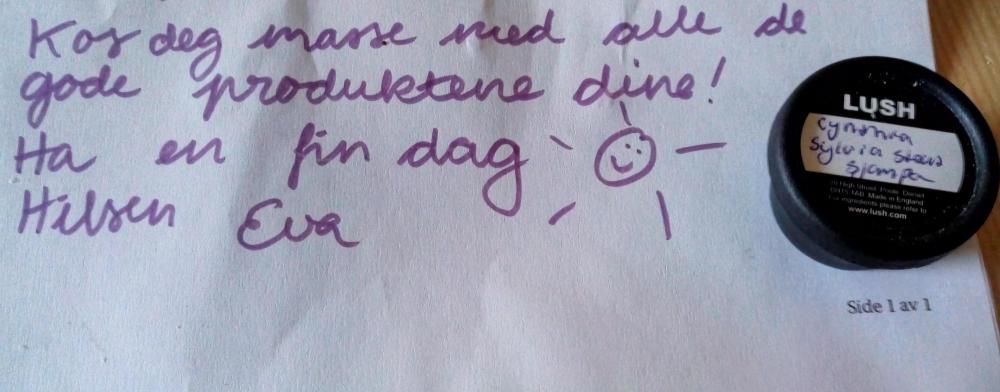 Kos deg masse med alle de
gode produktene dine!
Ha en fin dag
Hilsen Eva
LUSH
Cynthia
Sylvia Stout
Sjampo
29 High Street, Poole, Dorset
BH15 1AB. Made in England
For ingredients please refer to
www.lush.com
Side 1 av 1